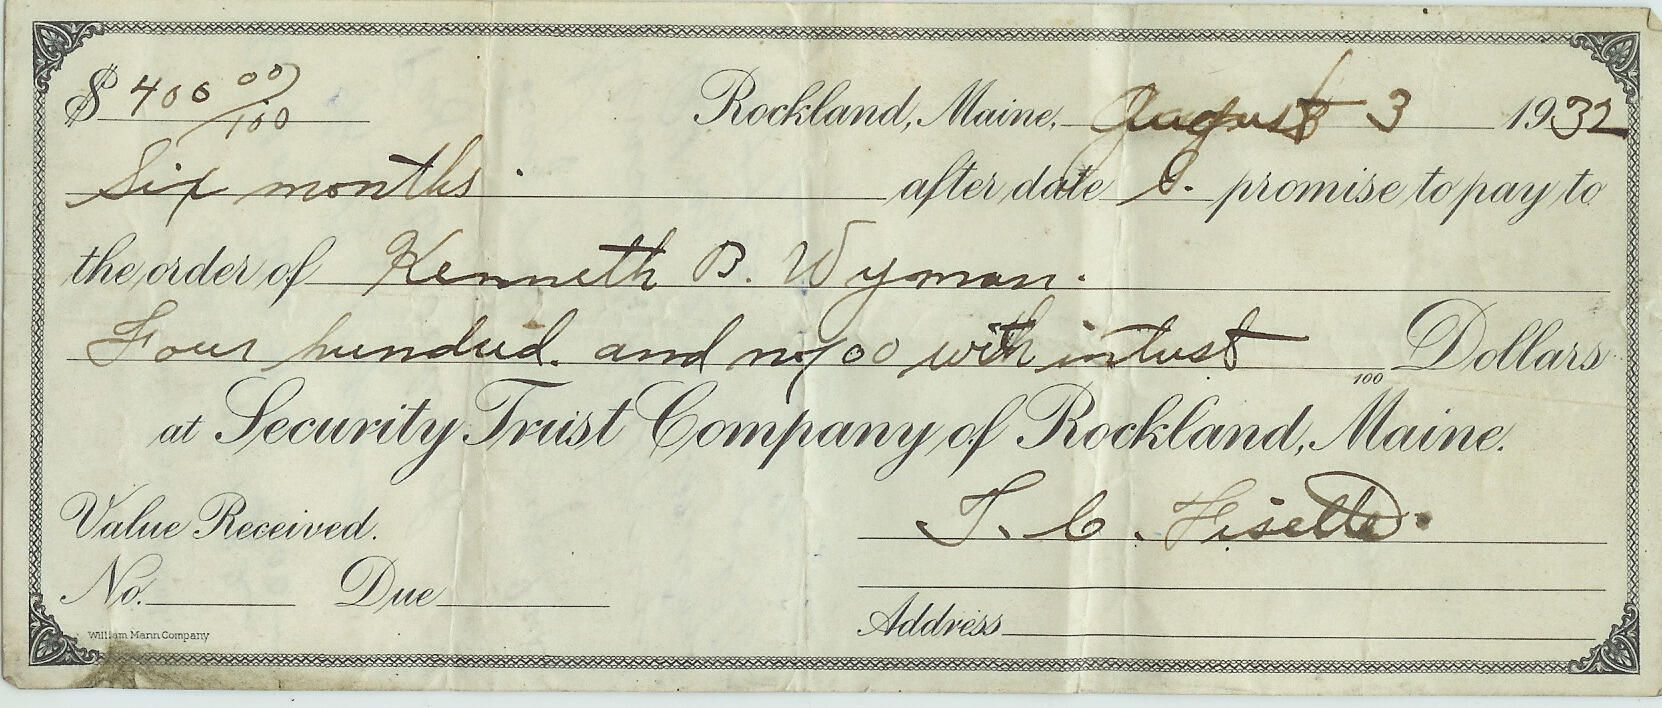 $ 400 00/100 Rockland, Maine, August 3 1932
Six months. after date I. promise to pay to
the order of Kenneth B. Wyman.
Four hundred. and no/00 with interest 100 Dollars
at Security Trust Company of Rockland, Maine.
Value Received. T. C. Fisette.
No. Due
Address
William Mann Company